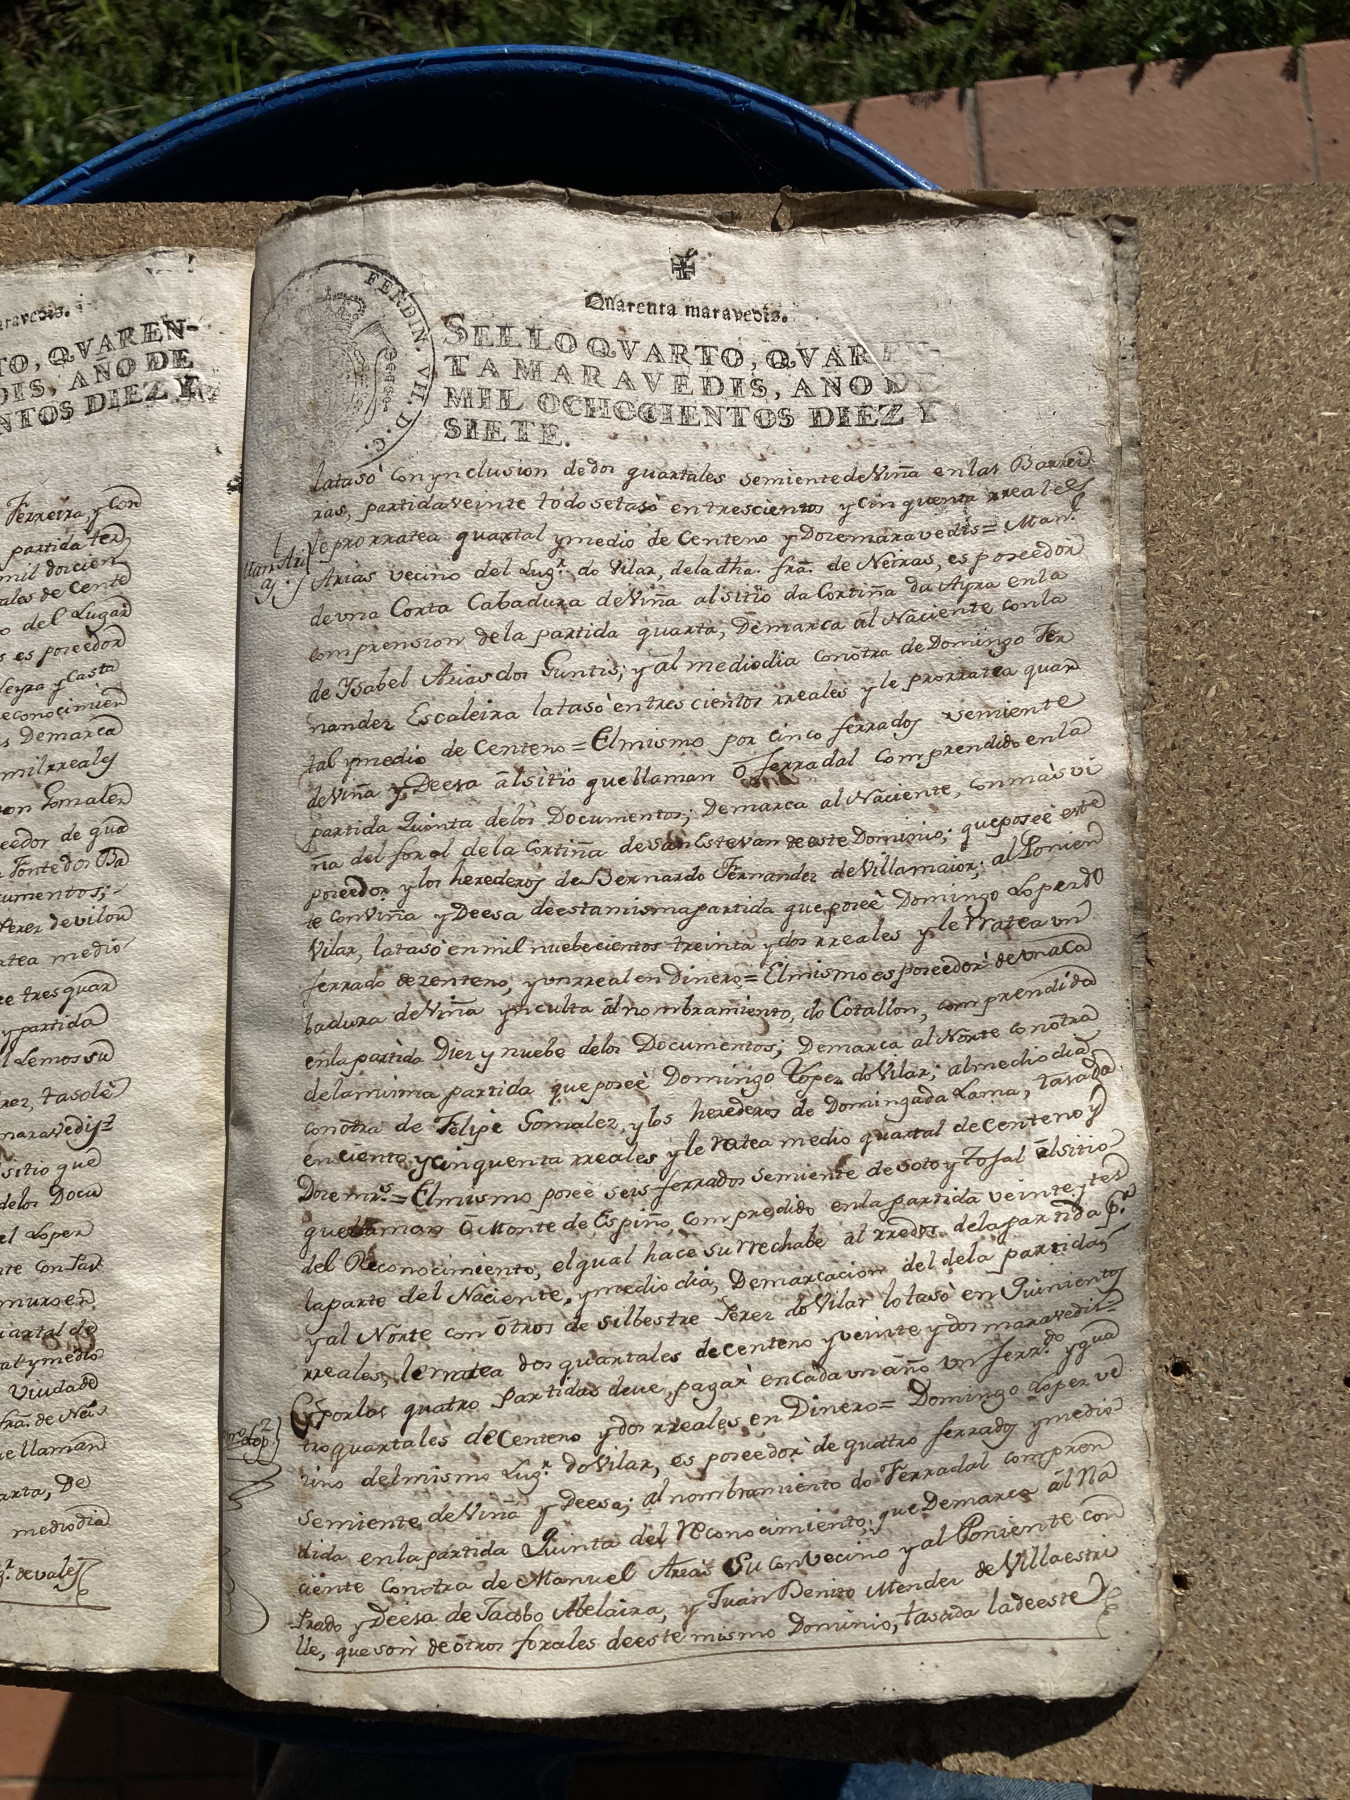 aravedis.
TO, QVAREN-
DIS, AÑO DE
NTOS DIEZ Y
Ferreira y Con
partida ter
mil dorcien
ales de Cente
o del Lugar
s es poreedor
leyra y Casta
econocimien
s Demarca
mil rreales
on Gomalez
eedor de qua
Fonte dos Ba
cumentos;
Perez de vilou
atea medio
te tres quar
y partida
l Lemos su
rez, tasole
maravedis=
sitio que
delos Docu
el Loper
nte con
muro en
uartal de
al y medio
Viuda de
fra. de Nei
ue llaman
arta, De
mediodia
de vales
Quarenta maravedis.
FERDIN. VII. D. G.
SELLO QVARTO, QVAREN-
TA MARAVEDIS, AÑO DE
MIL OCHOCIENTOS DIEZ Y
SIETE.
latasò con ynclusion de dos quartales semiente de Viña en las Barrei
ras, partida veinte todo setasò en trescientos y cinquenta rreales
le prorratea quartal y medio de Centeno y Doze maravedis= Manl.
Arias vecino del Lugr. do Vilar, dela dha. fra. de Neiras, es poreedor
de vna Corta Cabadura de Viña al sitio da Cortiña da Ayra en la
comprension dela partida quarta, Demarca àl Naciente con la
de Ysabel Arias dos Guntis; y àl mediodia con òtra de Domingo Fer
nandez Escaleira latasò en tres cientos rreales y le prorratea quar
tal y medio de Centeno = El mismo por cinco ferrados semiente
de Viña y Deesa àl sitio que llaman ò ferradal comprendido en la
partida Quinta delos Documentos; Demarca al Naciente, con màs vi
ña del foral de la Cortiña de San Estevan de este Dominio; que poseè este
poreedor y los herederos de Bernardo Fernandez de Villamaior; al Ponien
te con Viña y Deesa de esta misma partida que poseè Domingo Loper do
Vilar, latasò en mil nuebecientos treinta y dos rreales y le rratea un
ferrado de zenteno, y un rreal en Dinero= El mismo es poreedor de vna Ca
badura de Viña ynculta àl nombramiento, do Cotallon, comprendida
en la partida Diez y nuebe delos Documentos; Demarca al Norte con òtra
de la misma partida que poseè Domingo Lopez do Vilar; al medio dia
con òtra de Felipe Gomalez, y los herederos de Dominga da Lama, tasada
en ciento y cinquenta rreales y le ratea medio quartal de centeno y
Doze mrs.= El mismo poseè seis ferrados semiente de soto y tojal àl sitio
que llaman O Monte de Espiño, comprendido en la partida veinte y tres
del Reconocimiento, el qual hace su rrechabe àl rredor dela partida pr.
la parte del Naciente, y medio dia, Demarcacion del dela partida,
y al Norte con òtros de silbestre Perez do Vilar lo tasò en Quinientos
rreales, le rratea dos quartales de centeno y veinte y dos maravedis=
Y por las quatro partidas deve pagar en cada un año un ferrdo. y qua
tro quartales de Centeno y dos rreales en Dinero= Domingo Loper ve
zino del mismo Lugr. do Vilar, es poreedor de quatro ferrados y medio
semiente de Viña y Deesa; al nombramiento do Ferradal compren
dida en la partida Quinta del Reconocimiento; que Demarca àl Na
ciente con otra de Manuel Arias su convecino y al Poniente con
Prado y Deesa de Jacobo Abelaira, y Juan Benito Mender de Villaestri
lle, que son de òtros forales de este mismo Dominio, tasada la de este